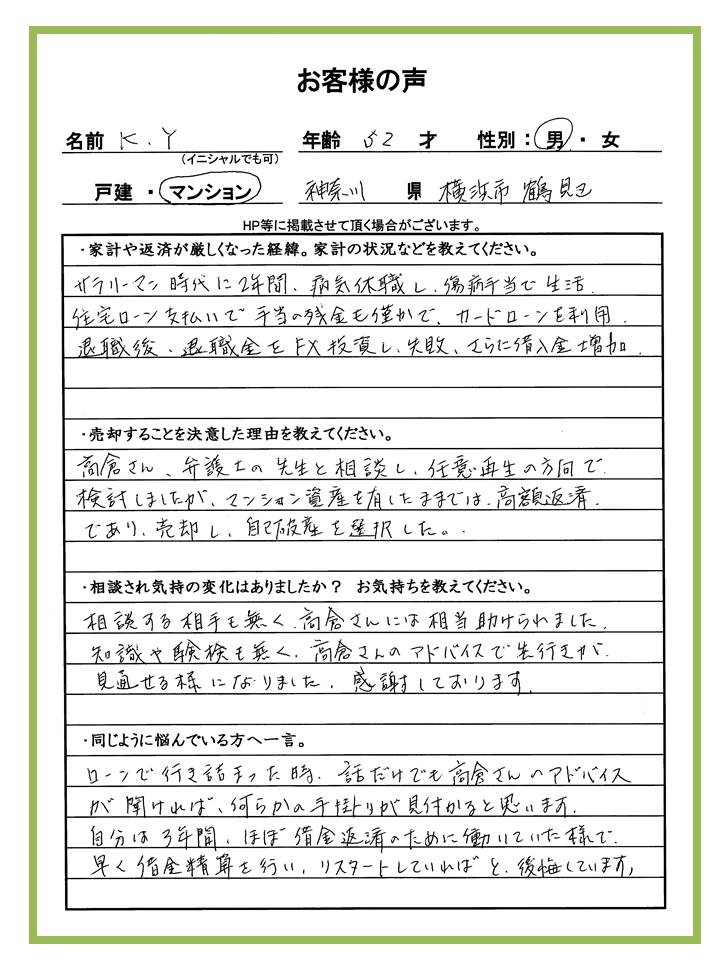 お客様の声
名前 K.Y 年齢 52 才 性別：男・女
（イニシャルでも可）
戸建・マンション 神奈川 県 横浜市 鶴見区
HP等に掲載させて頂く場合がございます。
・家計や返済が厳しくなった経緯。家計の状況などを教えてください。
サラリーマン時代に2年間、病気休職し、傷病手当で生活.
住宅ローン支払いで手当の残金も僅かで、カードローンを利用.
退職後、退職金をFX投資し、失敗、さらに借入金増加.
・売却することを決意した理由を教えてください。
高倉さん、弁護士の先生と相談し、任意再生の方向で.
検討しましたが、マンション資産を有したままでは、高額返済.
であり、売却し、自己破産を選択した。.
・相談され気持の変化はありましたか？ お気持ちを教えてください。
相談する相手も無く、高倉さんには相当助けられました.
知識や験検も無く、高倉さんのアドバイスで先行きが.
見直せる様になりました. 感謝しております.
・同じように悩んでいる方へ一言。
ローンで行き詰まった時、話だけでも高倉さんのアドバイス
が聞ければ、何らかの手掛りが見付かると思います.
自分は3年間、ほぼ借金返済のために働いていた様で.
早く借金精算を行い、リスタートしていればと、後悔しています,